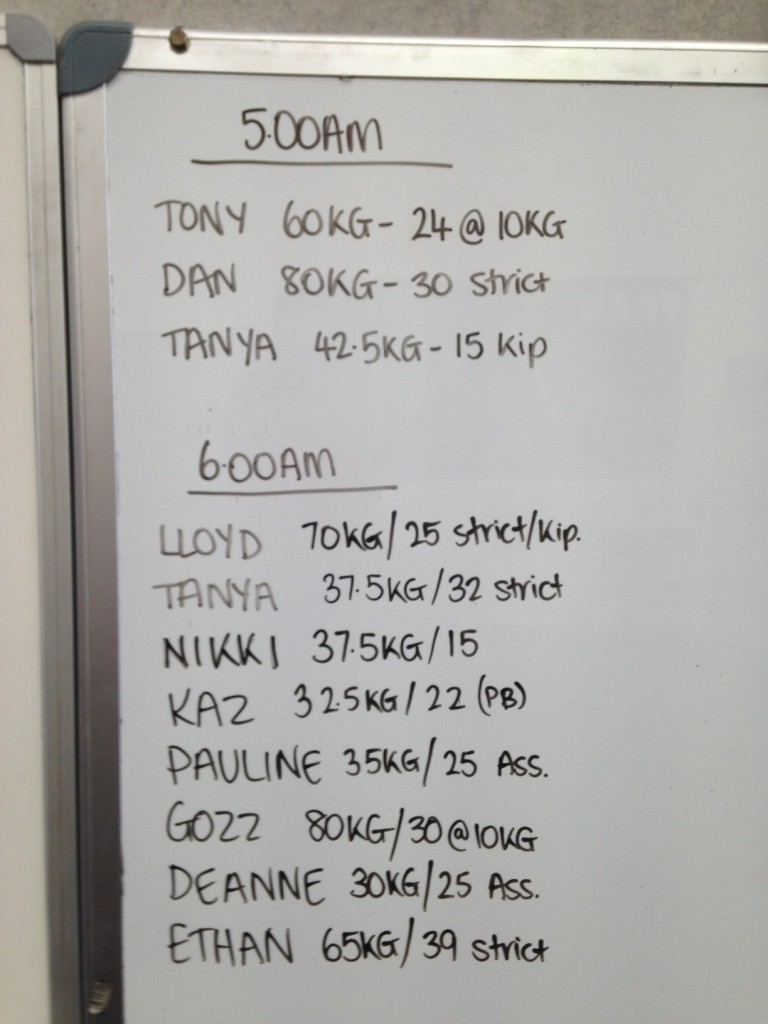 5.00AM
TONY 60KG- 24 @ 10KG
DAN 80KG- 30 Strict
TANYA 42.5KG- 15 Kip
6.00AM
LLOYD 70KG/ 25 Strict/Kip.
TANYA 37.5KG/32 Strict
NIKKI 37.5KG/15
KAZ 32.5KG/22 (PB)
PAULINE 35KG/25 Ass.
GOZZ 80KG/30@10KG
DEANNE 30KG/25 Ass.
ETHAN 65KG/39 Strict